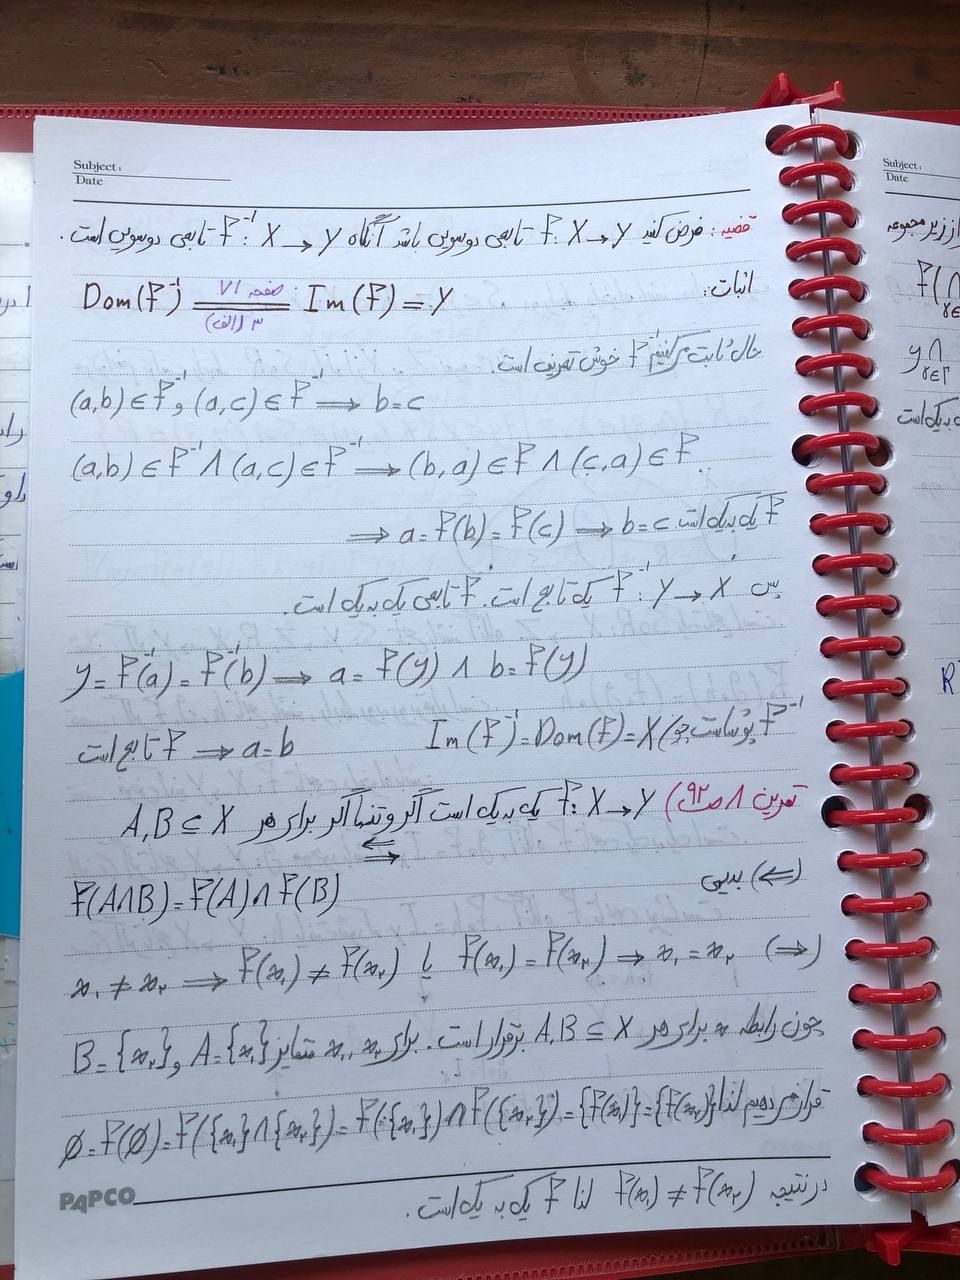 Subject:
Date
قضیه: فرض کنید f: X → Y تابعی دوسویی باشد آنگاه f⁻¹: X → Y تابعی دوسویی است.
اثبات: Dom(f⁻¹) = Im(f) = Y
صفحه ۷۱
۳ (الف)
حال ثابت می‌کنیم f⁻¹ خوش تعریف است.
(a,b) ∈ f⁻¹ و (a,c) ∈ f⁻¹ ⟹ b=c
(a,b) ∈ f⁻¹ ∧ (a,c) ∈ f⁻¹ ⟹ (b,a) ∈ f ∧ (c,a) ∈ f
⟹ a = f(b) = f(c) ⟹ b=c f یک به یک است
پس f⁻¹: Y → X یک تابع است. f⁻¹ تابعی یک به یک است.
y = f⁻¹(a) = f⁻¹(b) ⟹ a = f(y) ∧ b = f(y)
f⁻¹ پوشاست چرا Im(f⁻¹) = Dom(f) = X
f تابع است ⟹ a=b
تمرین ۸ ص ۹۲) f: X → Y یک به یک است اگر و تنها اگر برای هر A,B ⊆ X
⇐
⇒
f(A∩B) = f(A) ∩ f(B)
(⇐) بدیهی
(⇒) f(x₁) = f(x₂) ⟹ x₁ = x₂ یا x₁ ≠ x₂ ⟹ f(x₁) ≠ f(x₂)
چون رابطه * برای هر A,B ⊆ X برقرار است. برای x₁, x₂ متمایز A={x₁} و B={x₂}
قرار می‌دهیم لذا ∅ = f(∅) = f({x₁}∩{x₂}) = f({x₁}) ∩ f({x₂}) = {f(x₁)} = {f(x₂)}
در نتیجه f(x₁) ≠ f(x₂) لذا f یک به یک است.
PAPCO
Subject:
Date
از زیر مجموعه
f(∩
γ∈Γ
y ∩
γ∈Γ
یک است
R